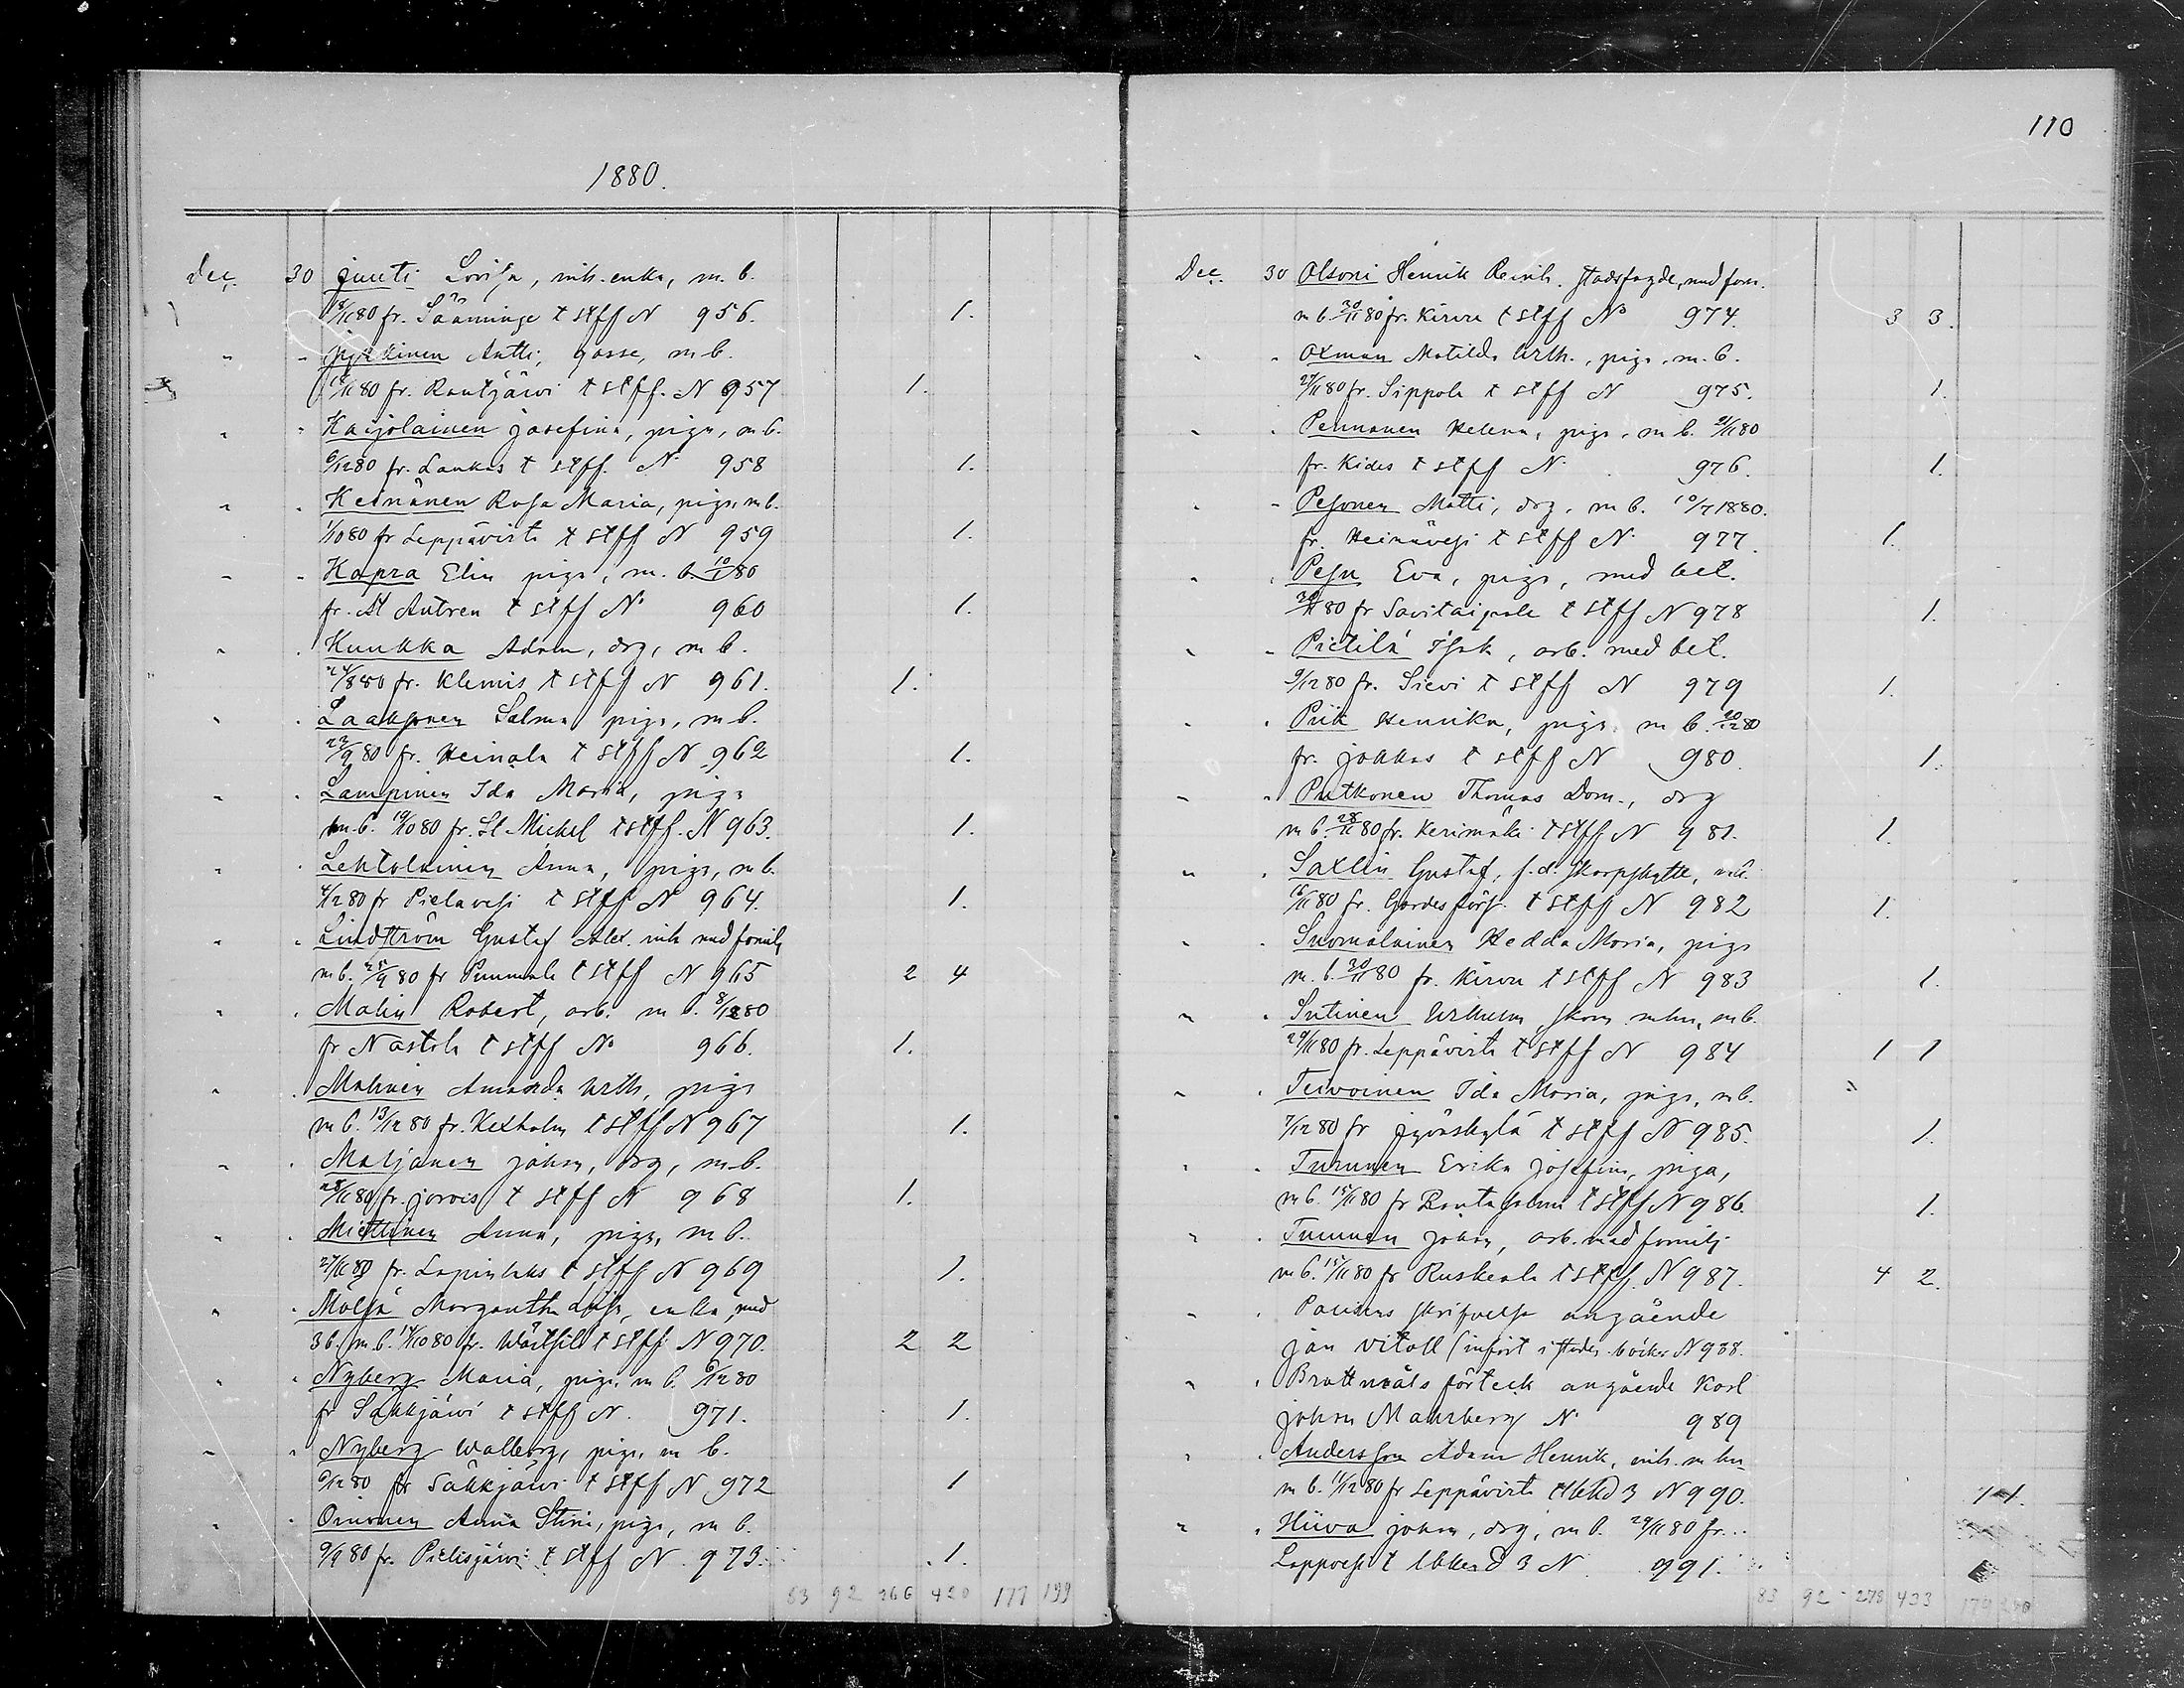 110
1880.
Dec. 30 Juuti Lovisa, inh. enka, m. b.
18/11 80 fr. Sääminge t stff N 956. 1.
" " Jyrkinen Antti, gosse, m b.
80 fr. Rautjärvi t stff. N 957 1.
" " Karjolainen Josefina, piga, m b.
6/12 80 fr. Laukas t stff. N 958 1.
" " Heinänen Rosa Maria, piga, m b.
1/10 80 fr Leppävirta t stff N 959 1.
" " Kapra Elin piga, m. b. 80
fr. St Antrea t stff N° 960 1.
" " Kuukka Adam, drg, m b.
80 fr. Klemis t stff N 961. 1.
" " Laaksonen Salma piga, m b.
22/9 80 fr. Heinola t stff N 962 1.
" " Lampinen Ida Maria, piga
m. b. 19/10 80 fr. St Michel t stff. N 963. 1.
" " Lehtolainen Anna, piga, m b.
4/12 80 fr Pielavesi t stff N 964. 1.
" " Lindström Gustaf Alex. inh med familj
m b. 25/9 80 fr Pummala t stff N 965 2 4
" " Malin Robert, arb. m b. 8/12 80
fr Nastola t stff No 966. 1.
" " Malinen Amanda Wilh, piga
m b. 13/12 80 fr. Kexholm t stff N 967 1.
" " Maljanen Johan, drg, m b.
28/11 80 fr. Jorois t stff N 968 1.
" " Miettinen Anna, piga, m b.
27/11 80 fr. Lapinlaks t stff N 969 1.
" " Molsä Margaretha Lovisa, enka, med
3 b. m b. 14/10 80 fr. Wärtsilä t stff N 970. 2 2
" " Nyberg Maria, piga m b. 6/12 80
fr Säkkjärvi t stff N. 971. 1.
" " Nyberg Walborg, piga, m b.
6/12 80 fr Säkkjärvi t stff N 972 1
" " Oinonen Anna Stina, piga, m b.
9/9 80 fr. Pielisjärvi t stff N 973. 1.
83 92 266 420 177 199
Dec. 30 Olsoni Henrik Reinh. stadsfogde, med fam.
m b. 30/11 80 fr. Kirvu t stff No 974. 3 3.
" " Oxman Matilda Wilh., piga, m. b.
27/11 80 fr. Sippola t stff N 975. 1.
" " Pennanen Helena, piga, m b. 80
fr. Kides t stff N. 976. 1.
" " Pesonen Matti, drg, m b. 10/7 1880.
fr. Heinävesi t stff N. 977. 1.
" " Pesu Eva, piga, med bet.
80 fr Savitaipale t stff N 978 1.
" " Pietilä Isak, arb. med bet.
9/12 80 fr. Sievi t stff N 979 1.
" " Piik Henrika, piga, m b. 20/12 80
fr. Jokkas t stff N 980. 1.
" " Putkonen Thomas Dom., drg
m b. 28/11 80 fr. Kerimäki t stff N 981. 1.
" " Saxlin Gustaf, f. d. skarpskytte,
16/11 80 fr. Gardesförs. t stff N 982 1.
" " Suomalainen Hedda Maria, piga
m. b. 30/11 80 fr. Kirvu t stff N 983 1.
" " Sutinen Wilhelm, skom. m hu, m b.
29/11 80 fr. Leppävirta t stff N 984 1 1
" " Teivoinen Ida Maria, piga, m b.
7/12 80 fr Jyväskylä t stff N 985. 1.
" " Turunen Erika Josefina, piga,
m b. 15/11 80 fr Rantasalmi t stff N 986. 1.
" " Turunen Johan, arb. med familj
m b. 15/11 80 fr Ruskeala t stff. N 987. 4 2.
" " Paulus skrifvelse angående
Jan Vitoll (infört i stads böcker N 988.
" " Brottmåls förteck angående Karl
Johan Manrberg N. 989
" " Andersson Adam Henrik, inh. m hu
m b. 11/12 80 fr Leppävirta t 3 N 990. 1 1.
" " Hiiva Johan, drg, m b. 29/11 80 fr...
Lappvesi t 3 N 991.
83 92 278 433 179 200